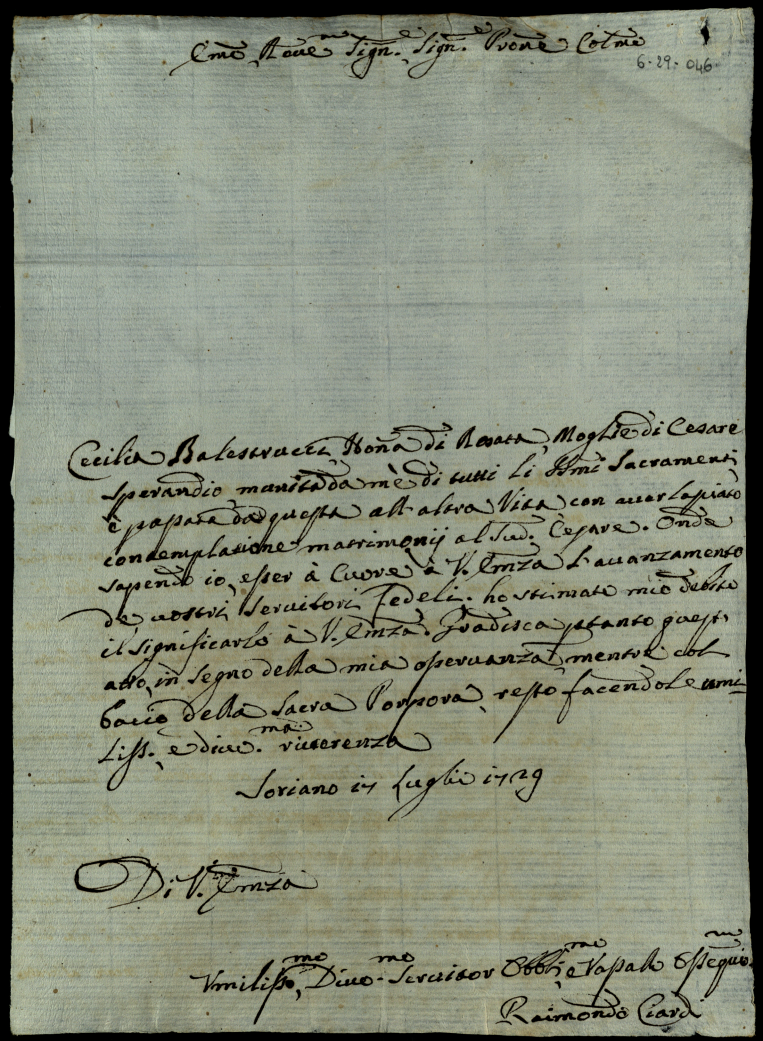 Emo, Reve.mo Sign.e, Sign.e Prone Colmo
6-29-046
Cecilia Balestrucci, Donna di Rosata, Moglie di Cesare
Sperandio, munita da mè di tutti li SSmi Sacramenti
è passata da questa all'altra Vita con
contemplatione matrimonij al Sud. Cesare. Onde
sapendo io, esser à Cuore à V. Emza l'avanzamento
de vostri Servitori Fedeli. ho stimato mio debito
il significarlo à V. Emza. Gradisca ptanto quest'
atto, in segno della mia osservanza, mentre col
bacio della Sacra Porpora, resto facendole umi-
liss. e dive.ma riverenza
Soriano 17 Luglio 1729
Di V. Emza
Vmilisso, Divo.mo Servitor Obbl.mo e Vassallo Ossequio.mo
Raimondo Ciardi